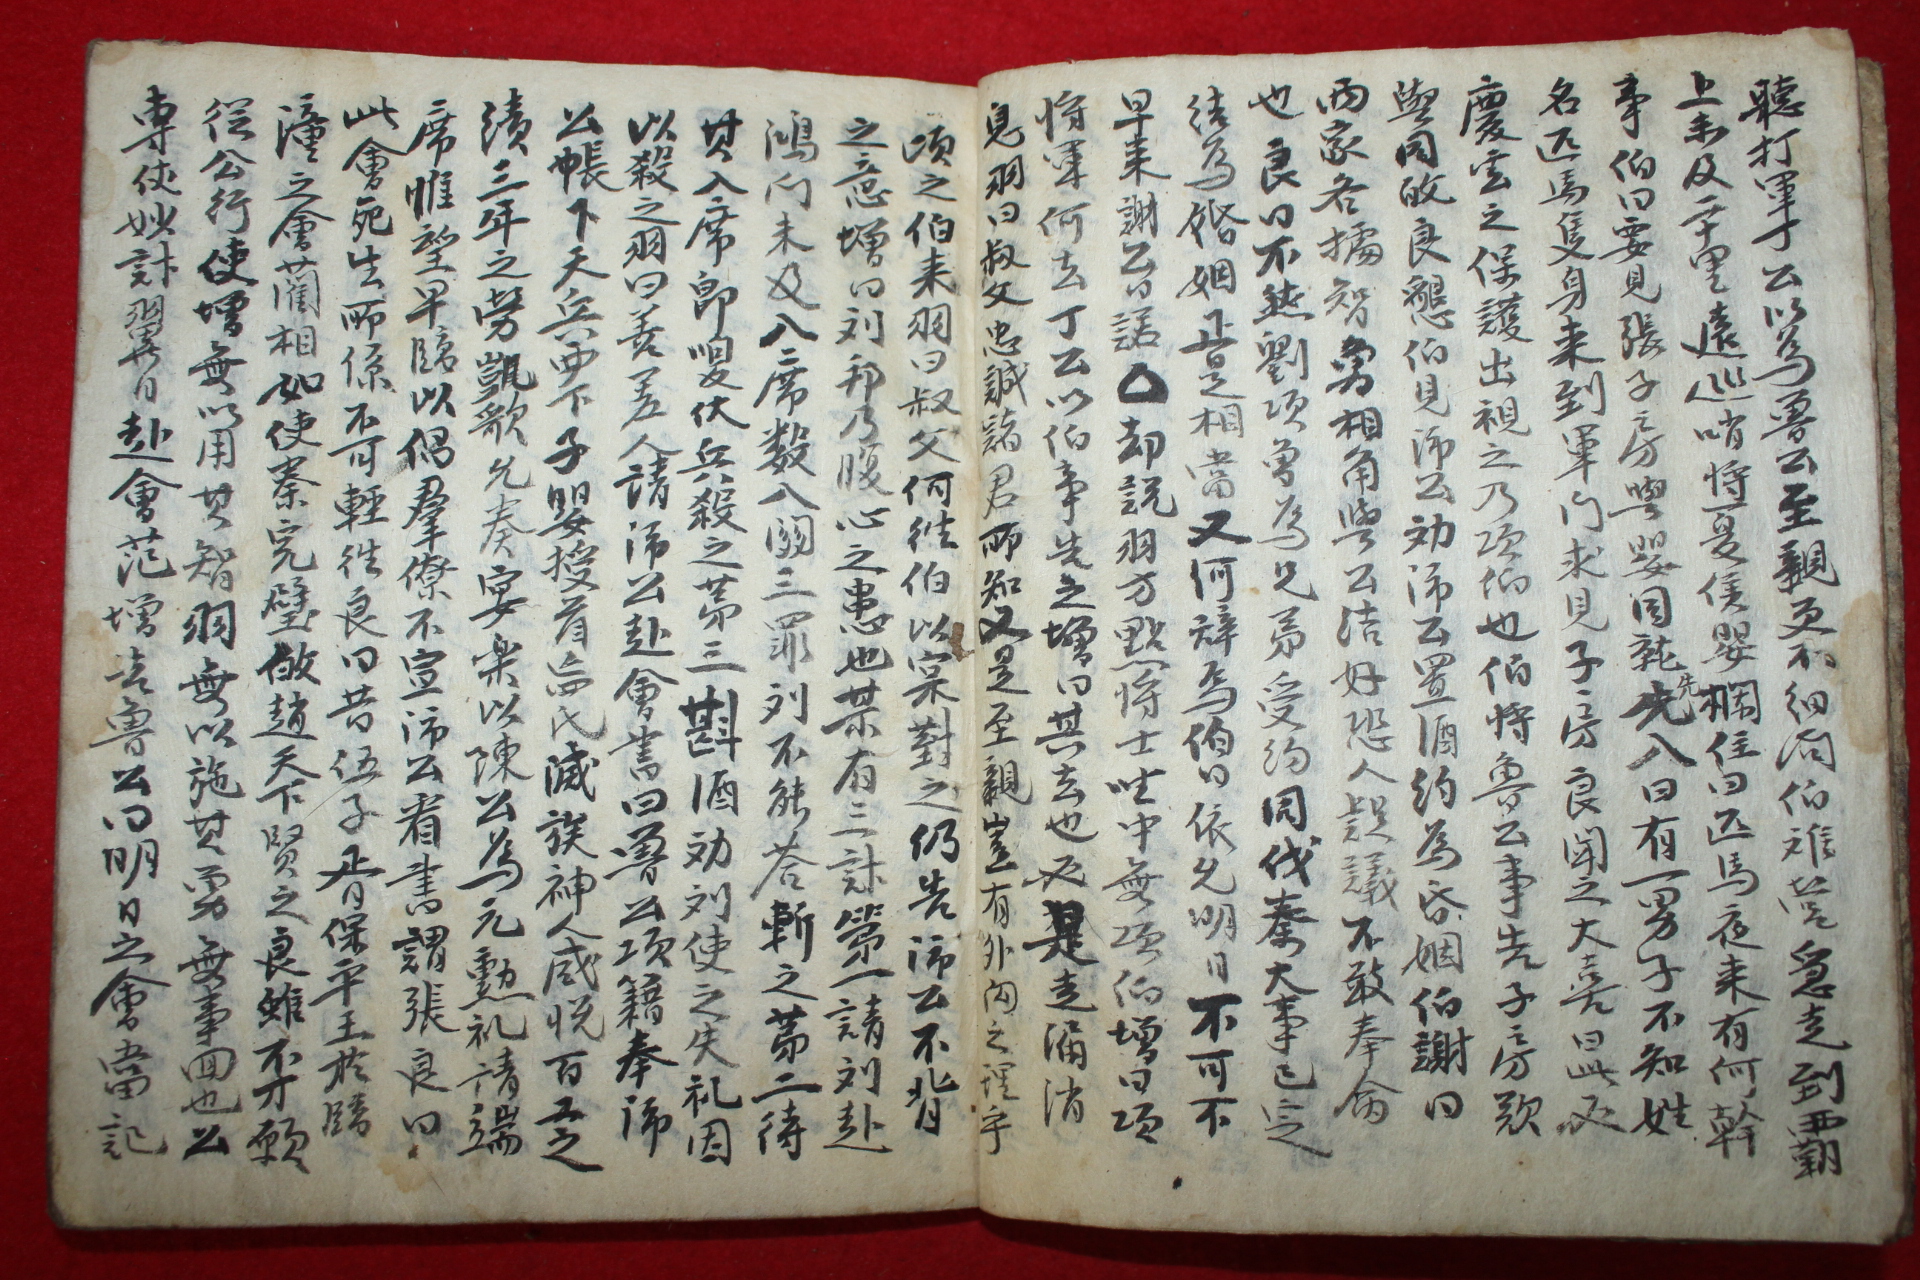 聽打軍丁公以爲魯公至親更不細問伯难営急走到覇
上未及二十里遠巡哨將夏侯嬰欄住曰匹馬夜来有何幹
事伯曰要見張子房與嬰同龍先入曰有一男子不知姓
先
名匹馬隻身来到軍门求見子房良闻之大喜曰此必
慶雲之保護出視之乃項伯也伯將魯公事告子房欵
與同飲良懇伯見沛公劝沛公置酒約爲昏姻伯謝曰
兩家各擄智勇相角與公结好恐人誤議不敢奉命
也良曰不然劉項曽爲兄弟受约同伐秦大事已定
结爲婚姻正是相當又何辞焉伯曰依允明日不可不
早来謝公曰諾却説羽方點將士坐中無項伯增曰項
將軍何去丁公以伯事告之增曰其去也必是走漏消
息羽曰叔父忠誠諸君所知又是至親豈有外向之理乎
頃之伯来羽曰叔父何徃伯以宲對之仍告沛公不背
之意增曰刘邦乃腹心之患也某有三計第一請刘赴
鴻门未及入席数入関三罪刘不能荅斬之苐二待
其入席郎嗖伏兵殺之苐三斟酒劝刘使之失礼因
以殺之羽曰善差人請沛公赴會書曰魯公項籍奉沛
公帳下天兵西下子嬰授首嬴氏滅族神人感悦百王之
績三年之勞凱歌允奏宴楽以陳公爲元勲礼请端
席惟望早臨以偈羣僚不宣沛公看書謂張良曰
此會死生所係不可輕徃良曰昔伍子胥保平王於臨
潼之會藺相如使秦完璧啟趙天下賢之良雖不才願
從公行使增無以用其智羽無以施其勇無事囬也公
専使妙計羽翌日赴會范增告魯公曰明日之會當記